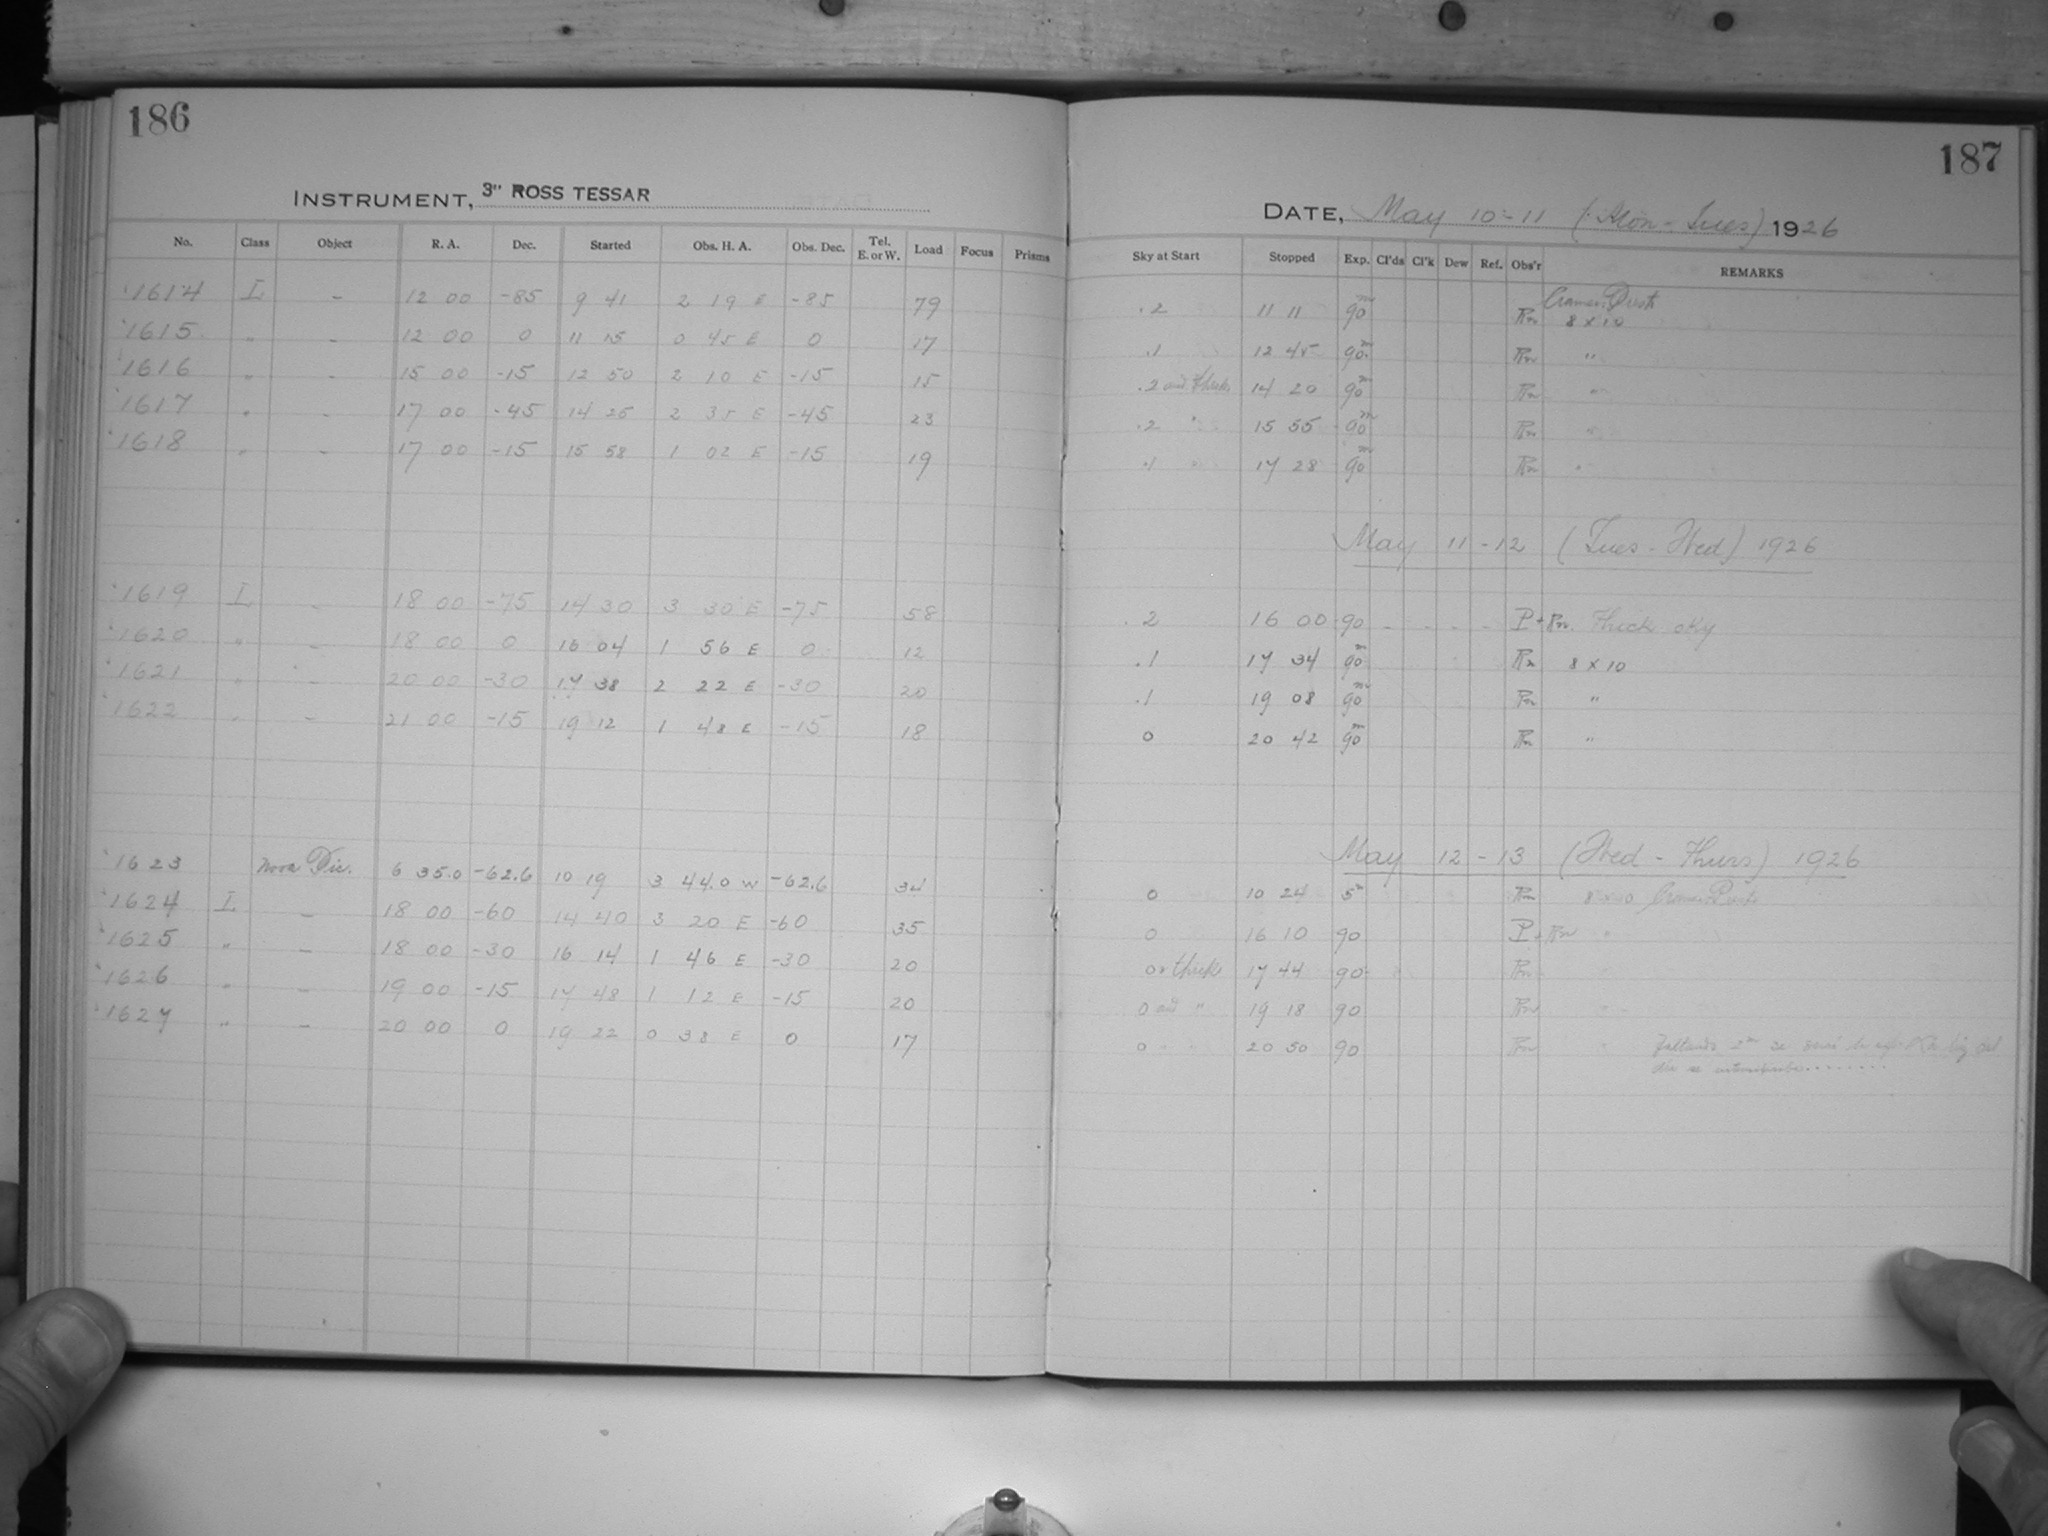 186
INSTRUMENT, 3" ROSS TESSAR
No. Class Object R. A. Dec. Started Obs. H. A. Obs. Dec. Tel. E. or W. Load Focus Prisms
1614 I - 12 00 -85 9 41 2 19 E -85 79
1615 " - 12 00 0 11 15 0 45 E 0 17
1616 " - 15 00 -15 12 50 2 10 E -15 15
1617 " - 17 00 -45 14 25 2 35 E -45 23
1618 " - 17 00 -15 15 58 1 02 E -15 19
1619 I - 18 00 -75 14 30 3 30 E -75 58
1620 " - 18 00 0 16 04 1 56 E 0 12
1621 " - 20 00 -30 17 38 2 22 E -30 20
1622 " - 21 00 -15 19 12 1 48 E -15 18
1623 Nova Pic. 6 35.0 -62.6 10 19 3 44.0 W -62.6 34
1624 I - 18 00 -60 14 40 3 20 E -60 35
1625 " - 18 00 -30 16 14 1 46 E -30 20
1626 " - 19 00 -15 17 48 1 12 E -15 20
1627 " - 20 00 0 19 22 0 38 E 0 17
187
DATE, May 10-11 (Mon-Tues) 1926
Sky at Start Stopped Exp. Cl'ds Cl'k Dew Ref. Obs'r REMARKS
.2 11 11 90m Rn Cramer
8 x 10
.1 12 45 90m Rn "
.2 and thick 14 20 90m Rn "
.2 " 15 55 90m Rn "
.1 " 17 28 90m Rn "
May 11-12 (Tues-Wed) 1926
.2 16 00 90 - - - - P + Rn. Thick sky
.1 17 34 90m Rn 8 x 10
.1 19 08 90m Rn "
0 20 42 90m Rn "
May 12-13 (Wed-Thurs) 1926
0 10 24 5m Rn 8 x 10 Cramer
0 16 10 90 P + Rn "
0 thick 17 44 90 Rn
0 and " 19 18 90 Rn "
0 " " 20 50 90 Rn " Faltando 2m se